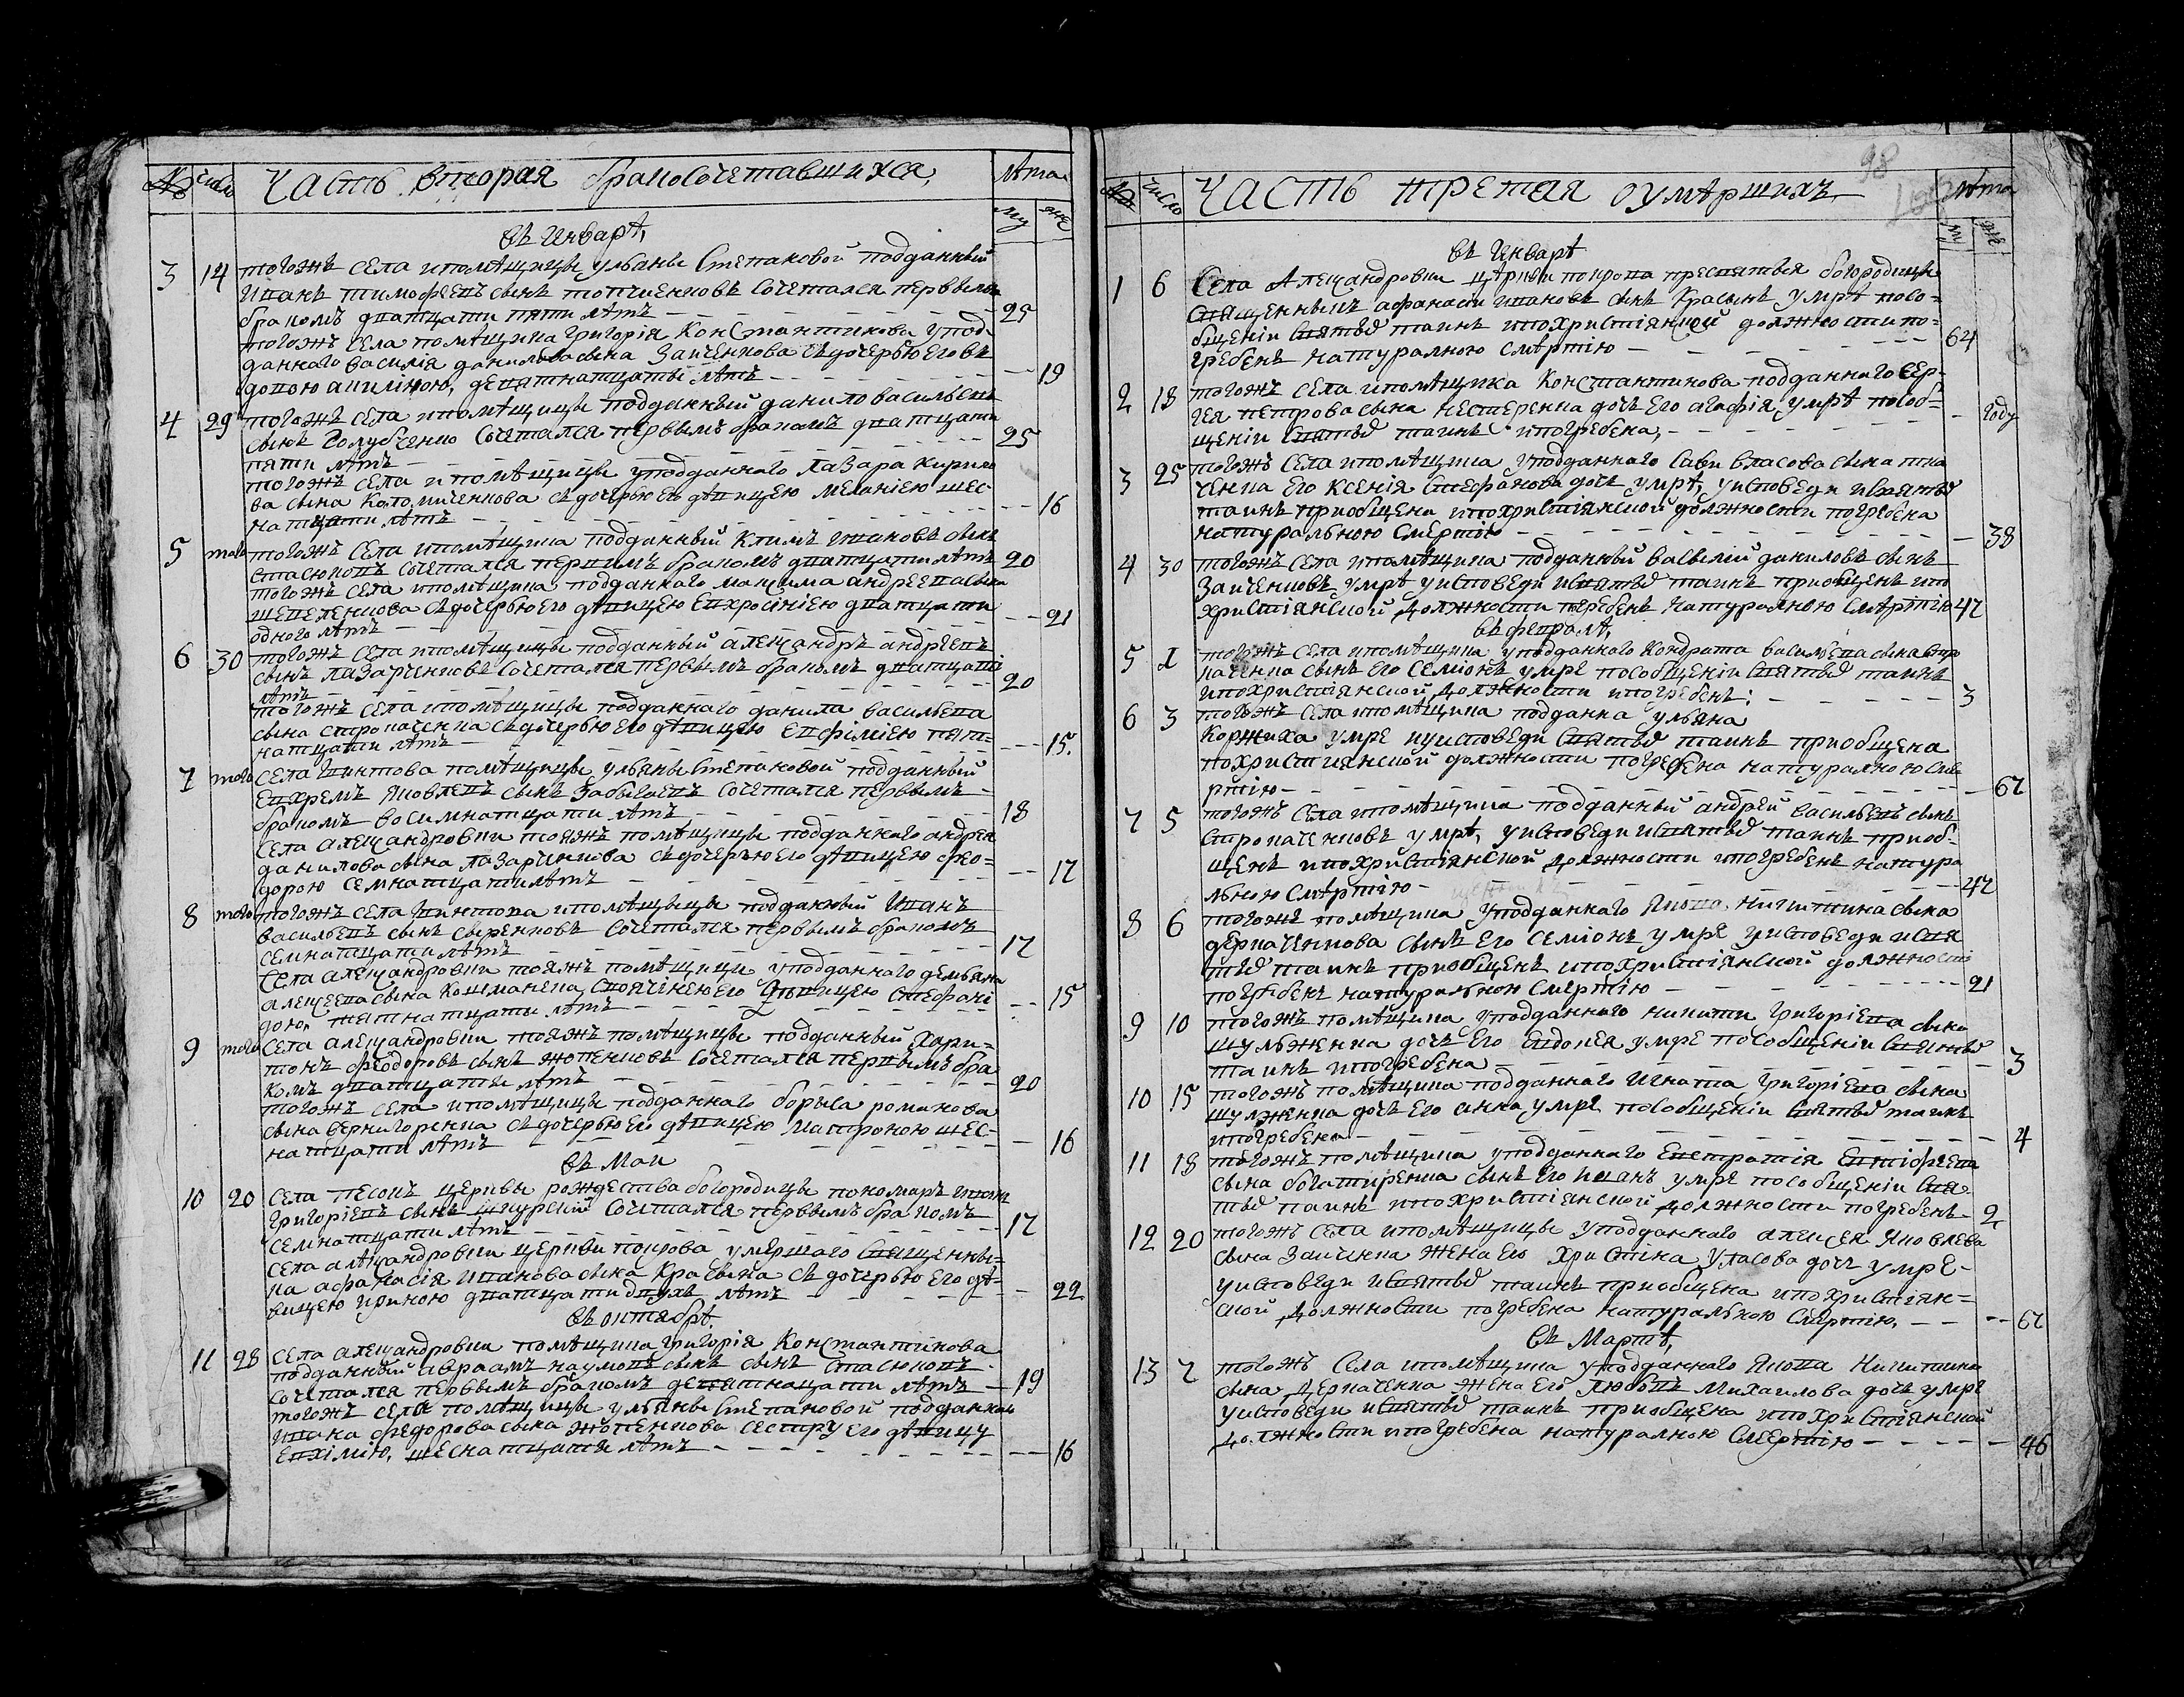 № число Часть вторая бракосочетавшихся, лѣта
му же
въ Январѣ,
3 14 тогожъ села ипомѣщицы ульяны Степановой подданный
Иванъ тимофеевъ сынъ Сочетался первымъ
бракомъ дватцати пяти лѣтъ 25
тогожъ села помѣщика григорія Константинова упод-
даннаго василія данилова сына Заиченкова съдочерью его въ
довою девятнатцаты лѣтъ 19
4 29 тогожъ села ипомѣщицы подданный данило васильевъ
сынъ Голубченко Сочетался первымъ бракомъ дватцати
пяти лѣтъ 25
тогожъ села ипомѣщицы уподданнаго лазара кирило
ва сына съдочерью его дѣвицею меланіею шес-
натцати лѣтъ 16
5 того тогожъ села ипомѣщика подданный климъ ивановъ сынъ
стасюковъ сочетался первимъ бракомъ дватцати лѣтъ 20
тогожъ села ипомѣщика подданнаго максима андреева сына
шепеленкова съдочерью его дѣвицею Евхросініею дватцати
одного лѣтъ 21
6 30 тогожъ села ипомѣщицы подданный алеѯандръ андреевъ
сынъ лазарченковъ сочетался первымъ бракомъ дватцаты
лѣтъ 20
тогожъ села ипомѣщицы подданнаго данила васильева
сына строкаченка съдочерью его дѣвицею Евфіміею пят-
натцати лѣтъ 15.
7 того села Шинтова помѣщицы ульяны Степановой подданный
Евхремъ Яковлевъ сынъ сочетался первымъ
бракомъ восимнатцати лѣтъ 18
села алеѯандровки тояжъ помѣщицы подданнаго андрея
данилова сына лазаренкова съдочерью его дѣвицею ѳео-
дорою семнатцати лѣтъ 17
8 того тогожъ села Шинтова ипомѣщицы подданный Иванъ
васильевъ сынъ сыренковъ сочетался первымъ бракомъ
семнатцати лѣтъ 17
села алеѯандровки тояжъ помѣщици уподданнаго демьяна
алеѯеева сына его дѣвицею Стефані
дою, пятнатцати лѣтъ 15
9 того села алеѯандровки тояжъ помѣщицы подданный Хари-
тонъ ѳеодоровъ сынъ жопенковъ сочетался первымъ бра
комъ дватцаты лѣтъ 20
тогожъ села ипомѣщицы подданнаго борыса романова
сына вернигоренка съдочерью его дѣвицею матроною шес-
натцати лѣтъ 16
въ Маи
10 20 села песокъ церквы рождества богородицы пономаръ иванъ
григоріевъ сынъ сочетался первымъ бракомъ
семнатцати лѣтъ 17
села алеѯандровки церкви покрова умершаго священни-
ка афанасія иванова сына Красына съдочерью его дѣ-
вицею ириною дватцати двухъ лѣтъ 22
въ октябрѣ.
11 28 села алеѯандровки помѣщика григорія Константинова
подданный авраамъ наумовъ сынъ сынъ стасюковъ
сочетался первымъ бракомъ девятнацати лѣтъ 19
тогожъ села помѣщицы ульяны Степановой подданнаго
ивана ѳедорова сына жопенкова сестру его дѣвицу
Евхімію, шеснатцатя лѣтъ 16
98
№ число Часть третая оумѣршихъ лѣта
му же
въ Январѣ
1 6 Села Алеѯандровки цѣркви покрова пресвятыя богородицы
священныкъ афанасій ивановъ сынъ Красынъ умрѣ посо-
бщеніи святыхъ таинъ ипохристіянской должности по-
гребенъ натуралною смѣртію 64
2 18 тогожъ села ипомѣщика Константинова подданнаго сер-
гея петрова сына нестеренка дочъ его агафія умрѣ посоо-
щеніи святыхъ таинъ ипогребена, году
3 25 тогожъ села ипомѣщика уподданнаго Сави власова сына тка
ченка его Ксенія Стефанова дочъ умрѣ, уисповеди исвятыхъ
таинъ приобщена ипохристіянской должности погребена
натуральною смертію 38
4 30 тогожъ села ипомѣщика подданный василій даниловъ сынъ
Заиченковъ умрѣ уисповеди исвятыхъ таинъ приобщенъ ипо
христіянской должности погребенъ натуралною смѣртію 47
въ февралѣ,
5 1 тогожъ села ипомѣщика уподданнаго Кондрата васильева сына
сынъ его Семіонъ умре пособщеніи святыхъ таинъ
ипохристіянской должности ипогребенъ: 3
6 3 тогожъ села ипомѣщика подданка ульяна
Коржиха умре иуисповеди святыхъ таинъ приобщена
похристиянской должности погребена натуралною сме
ртію 67
7 5 тогожъ села ипомѣщика подданный андрей васильевъ сынъ
строкаченковъ умрѣ, уисповеди исвятыхъ таинъ приоб-
щенъ ипохристіянской должности ипогребенъ натура
льною смѣртію 47
8 6 тогожъ помѣщика уподданнаго Якова никитина сына
деркаченкова сынъ его Семіонъ умре уисповеди исвя
тыхъ таинъ приобщенъ ипохристіянской должности
погребенъ натуральною смертію 21
9 10 тогожъ помѣщика уподданнаго никити григоріева сына
шульженка дочъ его Евдокея умре пособщеніи святыхъ
таинъ ипогребена 3
10 15 тогожъ помѣщика подданнаго Игната григоріева сына
шулженка дочъ его анна умре пособщеніи святыхъ таинъ
ипогребена 4
11 18 тогожъ помѣщика уподданнаго Евстратія Евтіфеева
сына богатиренка сынъ его Иванъ умре пособщеніи свя-
тыхъ таинъ ипохристіянской должности погребенъ 2
12 20 тогожъ села ипомѣщицы уподданнаго алеѯея Яковлева
сына Заиченка жена его христина Уласова дочъ умре-
уисповеди исвятыхъ таинъ приобщена ипохристіян-
ской должности погребена натуральною смертію. 67
въ Мартѣ,
13 7 тогожъ села ипомѣщика уподданнаго Якова Никитина
сына Деркаченка жена его любовъ Михаилова дочъ умре
уисповеди исвятыхъ таинъ приобщена ипохристіянской
должности ипогребена натуралною смеертію 46